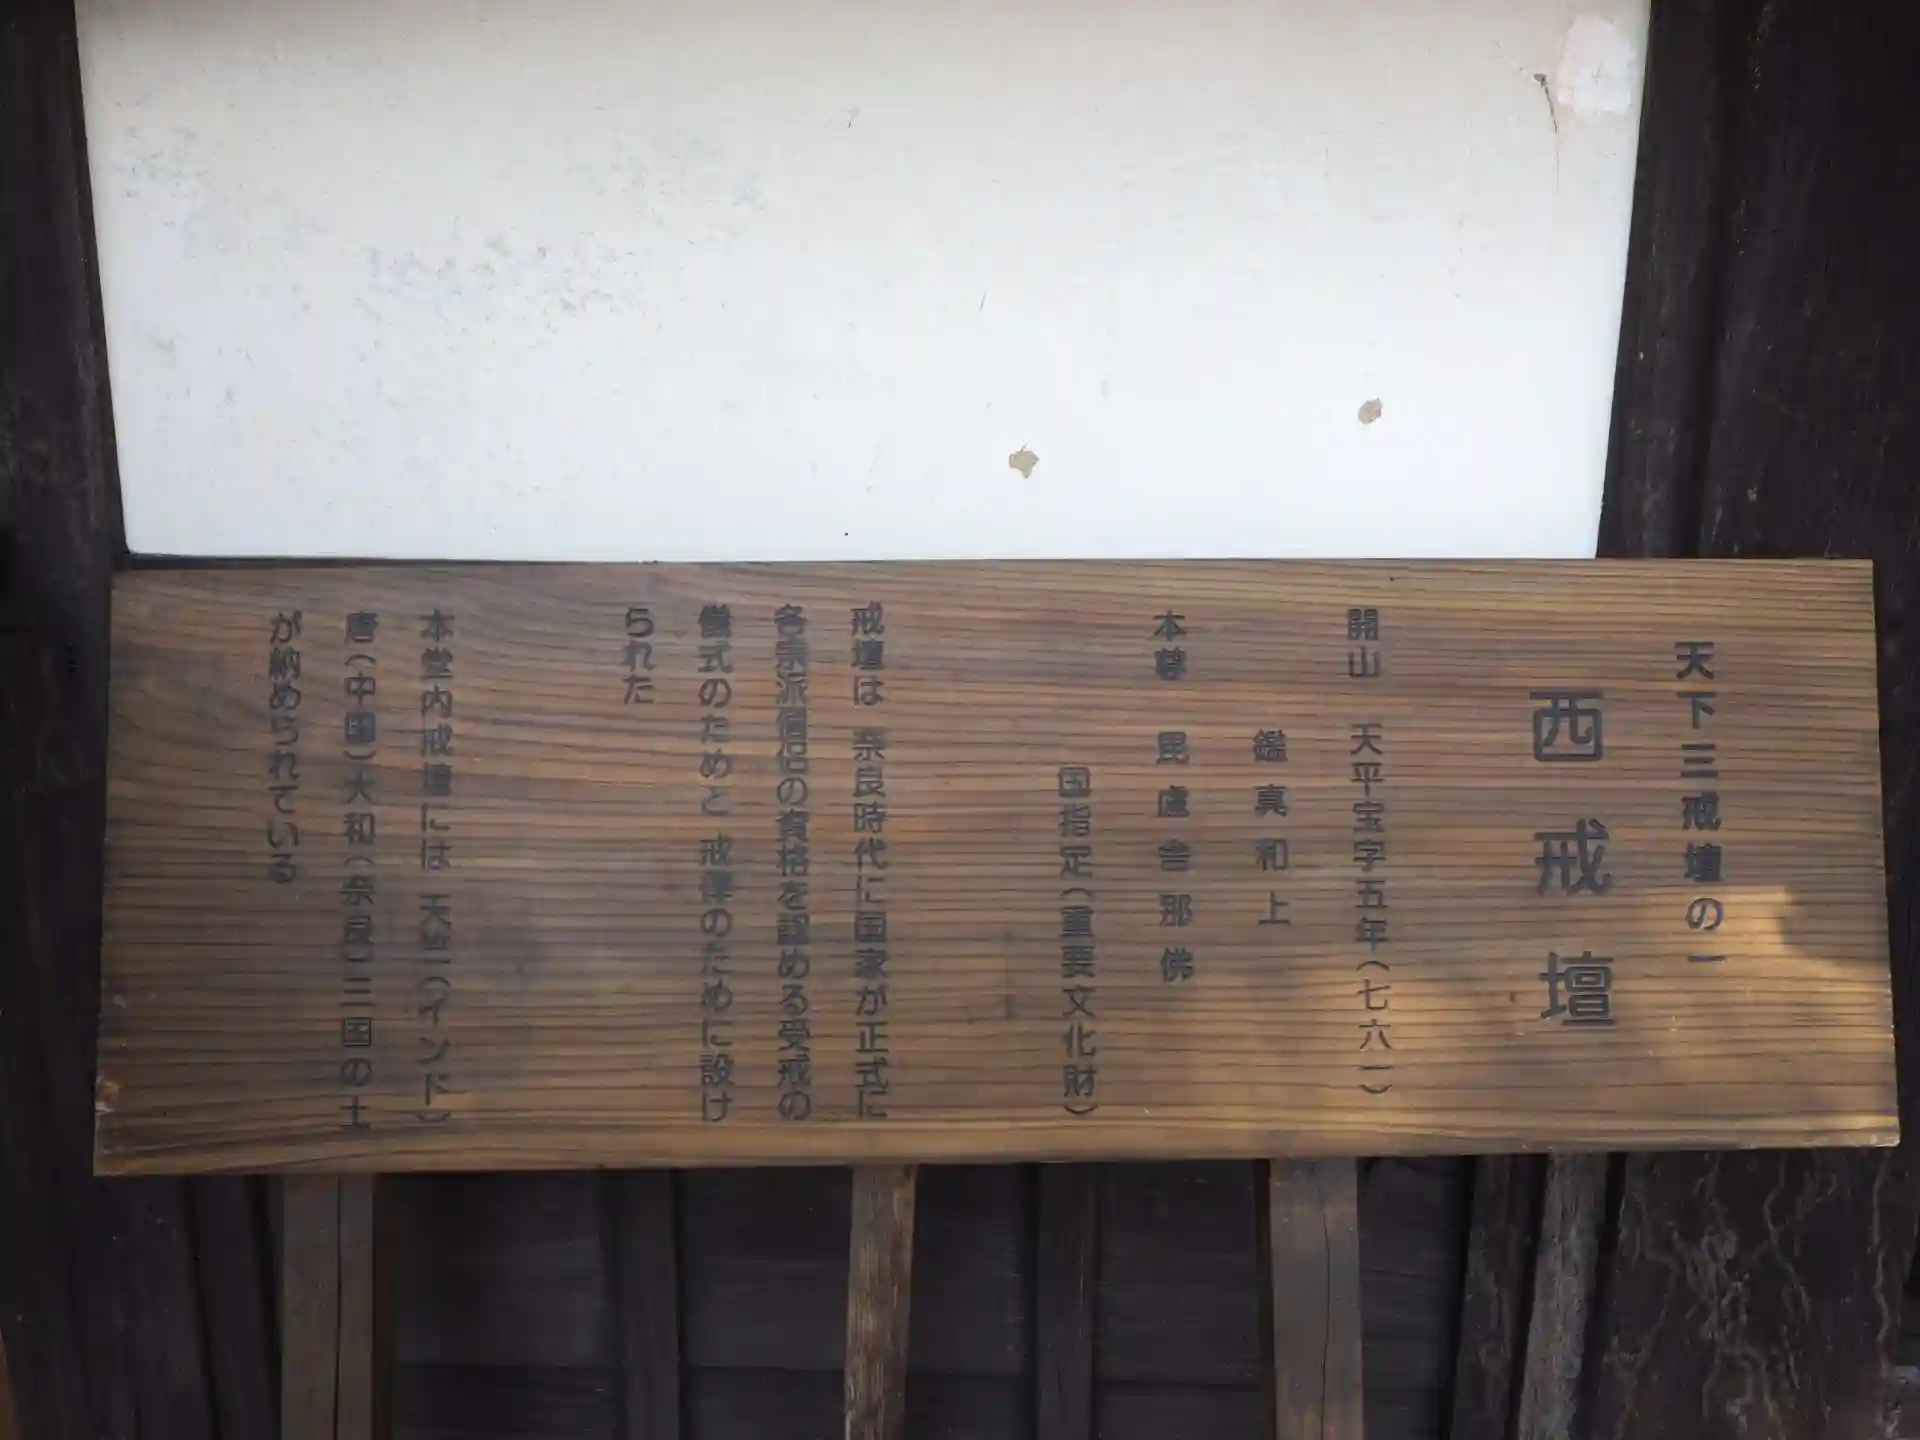 天下三戒壇の一
西戒壇
開山 天平宝字五年(七六一)
鑑真和上
本尊 毘盧舎那佛
国指定(重要文化財)
戒壇は 奈良時代に国家が正式に
各宗派僧侶の資格を認める受戒の
儀式のためと 戒律のために設け
られた
本堂内戒壇には 天竺(インド)
唐(中国)大和(奈良)三国の土
が納められている